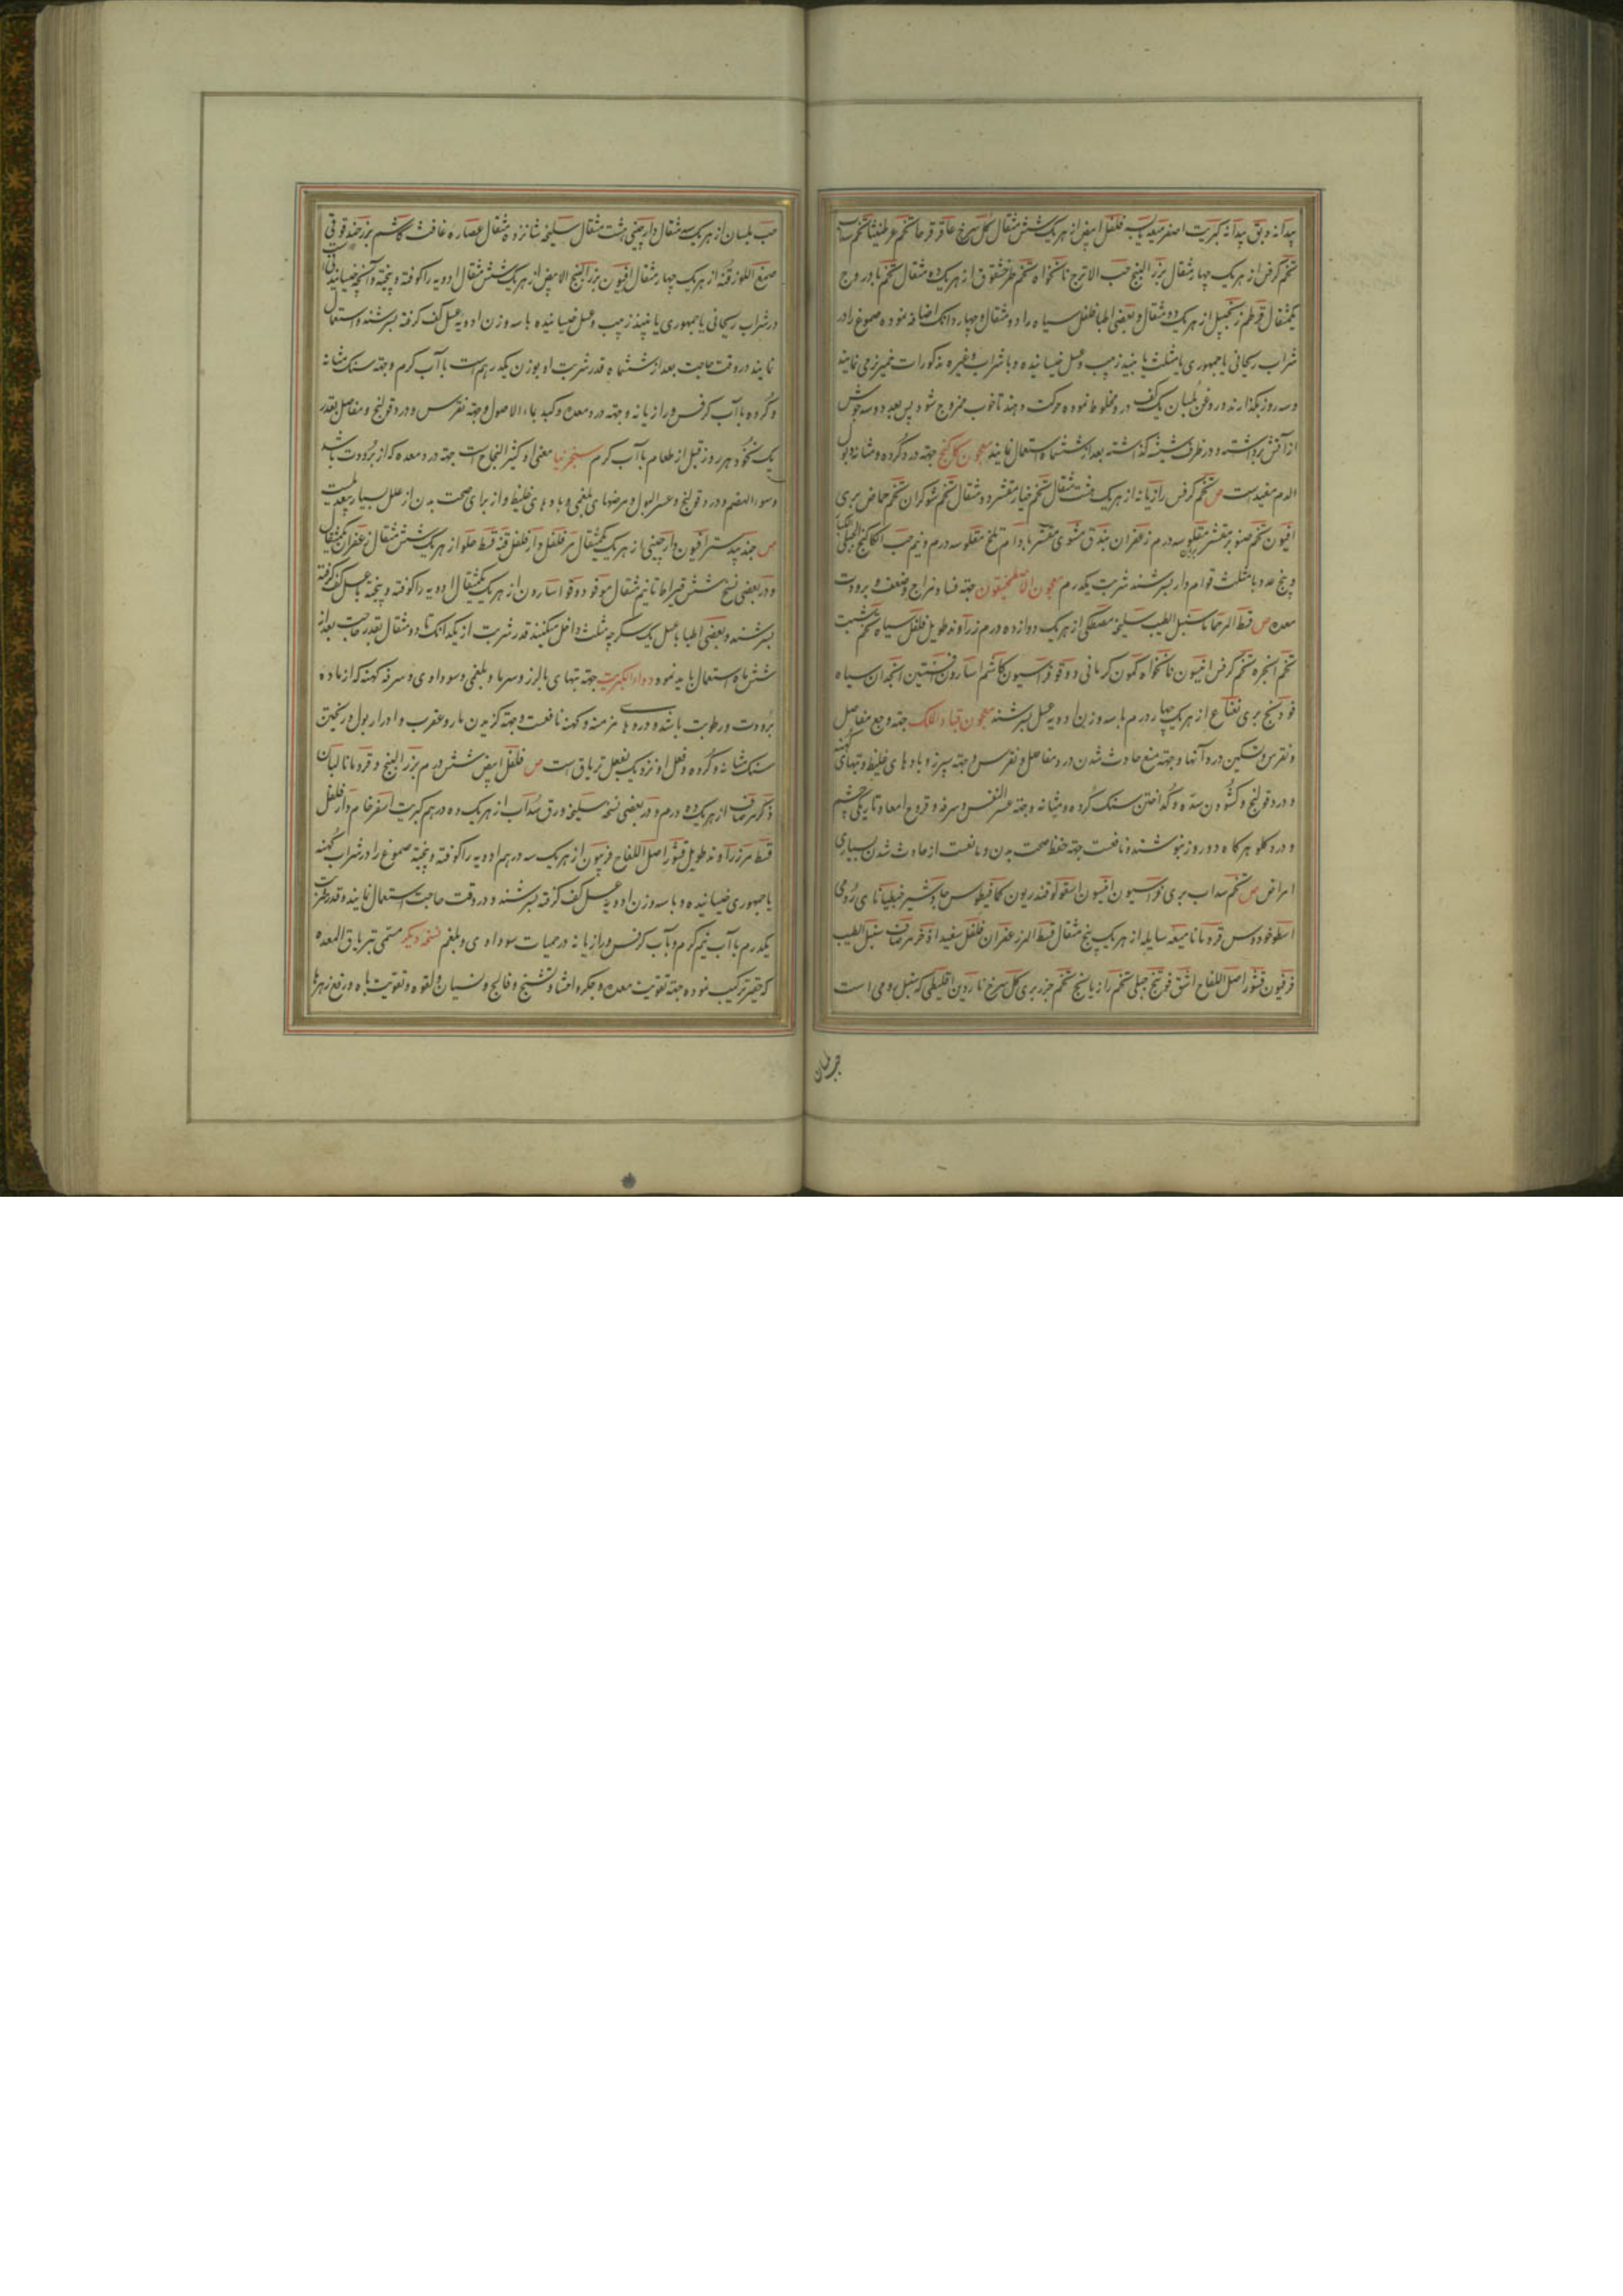 پیدانه دبق پیدانه کبریت اصفر میعه یابسه فلفل ابیض از هریک شش مثقال گل سرخ عاقرقرحا تخم عرطنیثا تخم سداب
تخم کرفس از هریک چهار مثقال بزر البنج حب الاترج نانخواه تخم طرخشقوق از هریک ده مثقال تخم بادروج
یکمثقال قرطم زنجبیل از هریک دو مثقال و بعضی اطبا فلفل سیاه را دو مثقال و چهار دانک اضافه نموده صموغ را در
شراب ریحانی یا جمهوری یا مثلث یا نبیذ زبیب و عسل خیسانیده و با شراب و غیره مذکورات خمیر نرمی نمایند
و سه روز بگذارند و روغن بلسان یک کف در و مخلوط نموده حرکت دهند تا خوب ممزوج شود پس بعد دو سه جوش
از آتش برداشته و در ظرف شیشه گذاشته بعد از ششماه استعمال نمایند معجون کاکنج جهته درد گرده و مثانه و بول
الدم مفید است ص تخم کرفس رازیانه از هریک هشت مثقال تخم خیار مقشر ده مثقال تخم شوکران تخم حماض بری
افیون تخم صنوبر مقشر مقلو سه درم زعفران بندق مشوی مقشر بادام تلخ مقلو سه درم و نیم حب الکاکنج الجبلی
و پنج عدد با مثلث قوام دار بسرشند شربت یکدرم معجون الاصطمخیقون جهته فساد مزاج و ضعف و برودت
معده ص قسط المر حماما سنبل الطیب سلیخه مصطکی از هریک دوازده درم زراوند طویل فلفل سیاه تخم شبت
تخم انجره تخم کرفس انیسون نانخواه کمون کرمانی دوقو فراسیون کاشم اسارون افسنتین انجدان سیاه
فودنج بری نعناع از هریک چهار درم با سه وزن ادویه عسل بسرشند معجون قباد الملک جهته وجع مفاصل
و نقرس و تسکین درد آنها و جهته منع حادث شدن درد مفاصل و نقرس و جهته سپرز و بادهای غلیظ و تبهای کهنه
و درد قولنج و کشودن سده و گداختن سنک گرده و مثانه و جهته عسر النفس و سرفه و قروع امعا و تاریکی چشم
و درد گلو هرگاه دو روز بنوشند و نافعست جهته حفظ صحت بدن و مانعست از حادث شدن بسیاری
امراض ص تخم سداب بری فراسیون افیون اسقولوقندریون کمافیطوس جاوشیر جنطیانای رومی
اسطوخودوس قردمانا میعه سایله از هریک پنج مثقال قسط المر زعفران فلفل سفید اذخر مرصاف سنبل الطیب
فرفیون قشور اصل اللفاح اشق فوتنج جبلی تخم رازیانج تخم جزر بری گل سرخ ناردین اقلیطی که سنبل رومی است
حب بلسان از هریک سه مثقال دارچینی هشت مثقال سلیخه شانزده مثقال عصاره غافث کاشم بزر حندقوقی
صمغ اللوز قنه از هریک چهار مثقال افیون بزر البنج الابیض از هریک شش مثقال ادویه را کوفته و بیخته و آنچه خیسانیدنی است
در شراب ریحانی یا جمهوری یا نبیذ زبیب و عسل خیسانیده با سه وزن ادویه عسل کف گرفته بسرشند و استعمال
نمایند در وقت حاجت بعد از ششماه قدر شربت او بوزن یکدرهم است با آب گرم و جهته سنک مثانه
و گرده با آب کرفس و رازیانه و جهته درد معده و کبد بماء الاصول و جهته نقرس و درد قولنج و مفاصل بقدر
یک نخود هر روز قبل از طعام با آب گرم سنجرینیا معنی او کثیر النجاح است جهته درد معده که از برودت باشد
و سوء الهضم و درد قولنج و عسر البول و مرضهای بلغمی و بادهای غلیظ و از برای صحت بدن از علل بسیار مفید است
ص جند بیدستر افیون دارچینی از هریک یکمثقال مر فلفل دار فلفل قنه قسط حلو از هریک شش مثقال زعفران یکمثقال
و در بعضی نسخ شش قیراط تا نیم مثقال مو فو دوقو اسارون از هریک یکمثقال ادویه را کوفته و بیخته بعسل کف گرفته
بسرشند و بعضی اطبا با عسل یک سکرجه مثلث داخل میکنند قدر شربت از یکدانک تا دو مثقال بقدر حاجت بعد از
شش ماه استعمال باید نمود دواء الکبریت جهته تبهای با لرز و سرما و بلغمی و سوداوی و سرفه کهنه که از ماده
برودت و رطوبت باشد و دردهای مزمنه و کهنه نافعست و جهته گزیدن مار و عقرب و ادرار بول و ریختن
سنک مثانه و گرده و فعل او نزدیک بفعل تریاق است ص فلفل ابیض شش درم بزر البنج و قردمانا لبان
ذکر مرصاف از هریک ده درم و در بعضی نسخه سلیخه ورق سداب از هریک ده درهم کبریت اصفر خام دار فلفل
قسط مر زراوند طویل قشور اصل اللفاح فرپیون از هریک سه درهم ادویه را کوفته و بیخته صموغ را در شراب کهنه
یا جمهوری خیسانیده و با سه وزن ادویه عسل کف گرفته بسرشند و در وقت حاجت استعمال نمایند و قدر شربت
یکدرم با آب نیم گرم و با آب کرفس و رازیانه در حمیات سوداوی و بلغم نسخه دیگر مسمی بتریاق المعده
که حقیر ترکیب نموده جهته تقویت معده و جگر و احشا و تشنج و فالج و نسیان و لقوه و تقویت باه و رفع زهرها